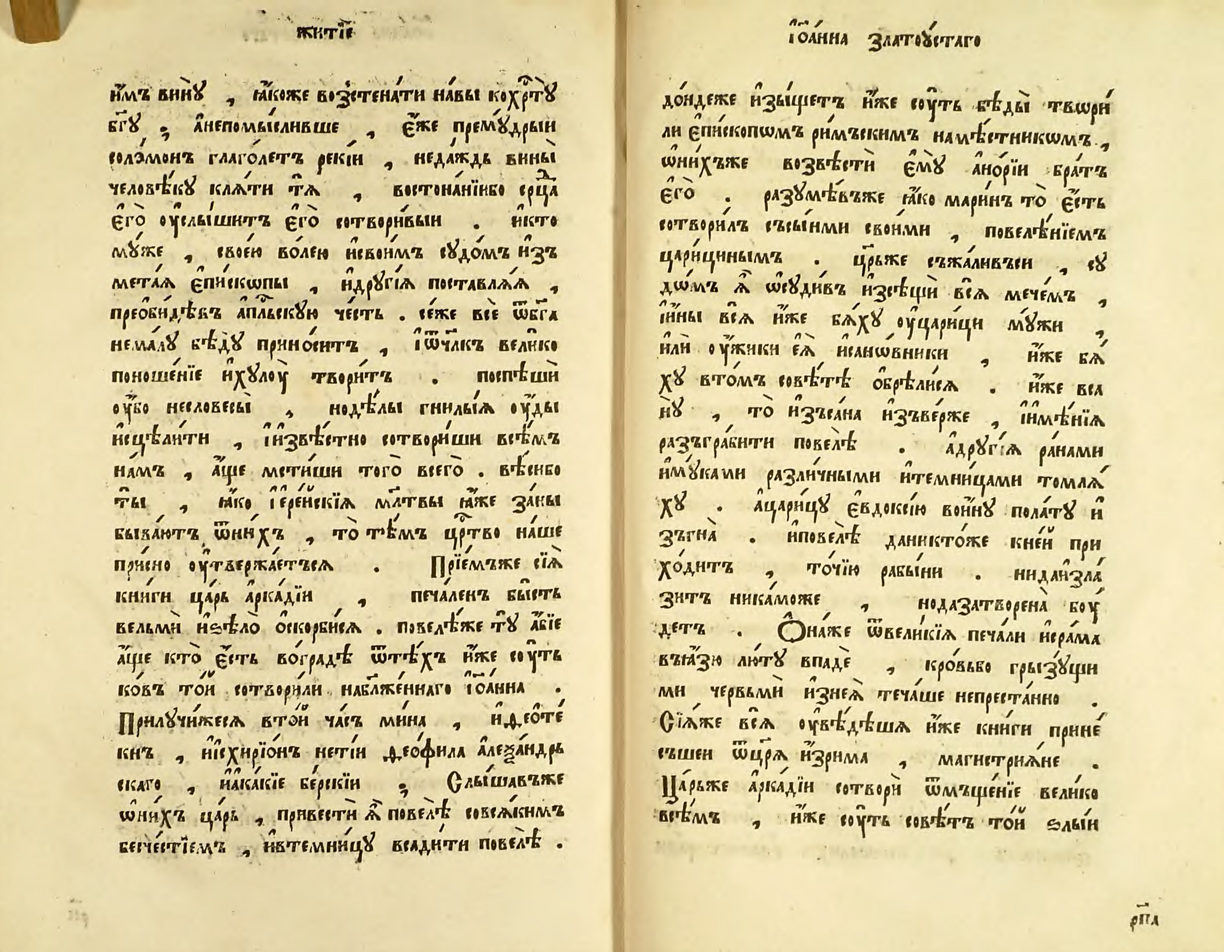 житїе
и҆̀мъ винꙋ̀ , ꙗ҆́коже возстена́ти на́вы кохрⷭ҇тꙋ̀
бг҃ꙋ ; а҆непомы́сливше , є҆́же премꙋ́дрыи
соло́монъ глаго́летъ рекі́и , неда́ждь вины̀
человѣ́кꙋ кла́ти тѧ̀ , востона́нїибо срⷣца
є҆гѡ̀ оу҆слы́шитъ є҆го̀ сотвори́выи . и҆кто
мꙋ́же , свое́ю во́лею и҆свои́мъ сꙋдо́мъ и҆зъ
мета́ѧ є҆пи́скѡпы , и҆дрꙋгі́ѧ поставлѧ́ѧ ,
преѡби́дѣвъ а҆пⷭ҇льскꙋю че́сть . се́же все ѿбг҃а
нема́лꙋ бѣ́дꙋ прино́ситъ , і҆ѿчл҃къ вели́ко
поноше́нїе и҆хꙋлоу̀ твори́тъ . поспѣшѝ
оу҆́бо несловесы̀ , нодѣ́лы гнилы́ѧ оу҆́ды
и҆сцѣли́ти , і҆и҆звѣ́стно сотвори́ши всѣ́мъ
на́мъ , а҆́ще мети́ши того̀ всего̀ . вѣ́сибо
ты̀ , ꙗ҆́ко і҆ере́йскїѧ мл҃твы ꙗ҆̀же за́ны
быва́ютъ ѿни́хъ , то̀ тѣ́мъ црⷭ҇тво на́ше
при́сно оу҆твержа́етъсѧ . Прїе́мъже сїѧ̀
кни́ги ца́рь а҆рка́дїи , печа́ленъ бы́сть
вельмѝ и҆ѕѣ́ло ѡ҆скорби́сѧ . повелѣ́же тꙋ̀ а҆́бїе
а҆́ще кто̀ є҆́сть вогра́дѣ ѿтѣ́хъ и҆̀же сꙋ́ть
ко́въ то́й сотвори́ли набл҃же́ннаго і҆ѡа́нна .
Прилꙋчи́жесѧ вто́й ча́съ ми́на , и҆ѳео́те
кнъ , и҆и҆схирїо́нъ не́тїи ѳео́фила а҆леѯа́ндрь
скаго , и҆а҆ка́кїе бе́рскїи ; Слы́шавъже
ѡ҆ни́хъ ца́рь , привестѝ ѧ҆̀ повелѣ̀ совсѧ́кимъ
безче́стїемъ , и҆втемни́цꙋ всади́ти повелѣ̀ .
і҆ѡа́нна златоу́стаго
до́ндеже и҆зы́щетъ и҆̀же соу́ть бѣ́ды̀ твѡри́
ли є҆пи́скопѡмъ ри́мъскимъ намѣ́стникѡмъ ,
ѡ҆ни́хъже возвѣстѝ є҆мꙋ̀ а҆но́рїи бра́тъ
є҆гѡ̀ . разꙋмѣ́въже ꙗ҆́ко ма́ринъ то̀ є҆́сть
сотвори́лъ съсы́ими свои́ми , повелѣ́нїемъ
цари́цинымъ . цр҃ьже съжа́ливъси , сꙋ
до́мъ ѧ҆̀ ѡ҆сꙋди́въ и҆зсѣщѝ всѧ̀ мече́мъ ,
і҆и҆ны всѧ̀ и҆̀же бѧ́хꙋ оу҆цари́ци мꙋ́жи ,
и҆лѝ оу҆́жики є҆ѧ̀ и҆сано́вники , и҆̀же бѧ́
хꙋ вто́мъ совѣ́тѣ ѡ҆брѣ́лисѧ . и҆̀же вса
нꙋ̀ , то̀ и҆зъса́на и҆зъве́рже , і҆и҆мѣ́нїѧ
разъгра́бити повелѣ̀ . а҆дрꙋгі́ѧ ра́нами
и҆мꙋ́ками разли́чными и҆темни́цами томлѧ́
хꙋ . а҆цари́цꙋ є҆вдоксі́ю во́инꙋ пола́тꙋ и҆
зъгна̀ . и҆повелѣ̀ даникто́же кне́й при
хо́дитъ , то́чїю рабы́ни . нида́изла́
зитъ никамо́же , нодазатворена̀ боу́
детъ . Ѻ҆на́же ѿвели́кїѧ печа́ли и҆сра́ма
въꙗ҆́зю лю́тꙋ впадѐ , кро́вьбо грызꙋ́щи
ми червьмѝ и҆знеѧ̀ теча́ше непреста́нно .
Сїѧ́же всѧ̀ оу҆вѣ́дѣшѧ и҆̀же кни́ги прине́
съшеи ѿцр҃ѧ и҆зри́ма , магистрїѧ́не .
Ца́рьже а҆рка́дїи сотворѝ ѿмъще́нїе вели́ко
всѣ́мъ , и҆̀же соу́ть совѣ́тъ то́й ѕлы́и
рп҃а